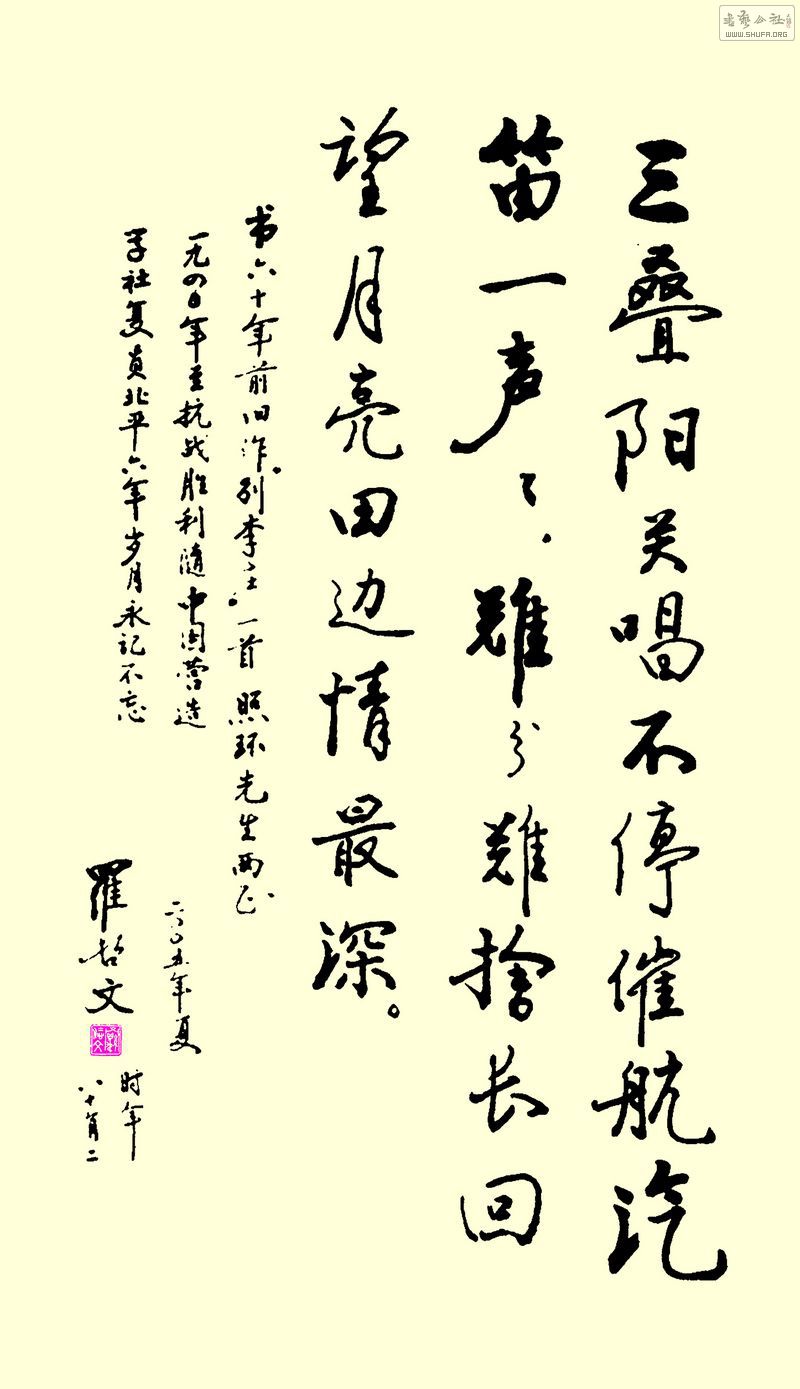 三叠阳关唱不停催航汽
笛一声々、難分難捨长回
望月亮田边情最深。
书六十年前旧作。别李庄。一首 照环先生两正
一九四〇年至抗战胜利随中国营造
学社复员北平六年岁月永记不忘
二〇〇五年夏
羅哲文
时年
八十有二
WWW.SHUFA.ORG